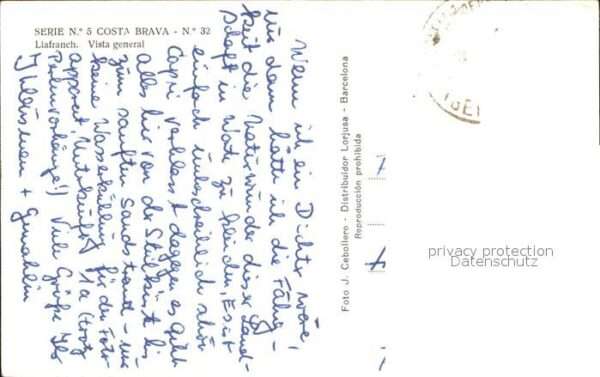 SERIE N.º 5 COSTA BRAVA - N.º 32
Llafranch. Vista general
Wenn ich ein Dichter wäre,
nur dann hätte ich die Fähig-
keit die Naturwunder dieser Land-
schaft in Worte zu kleiden. Es ist
einfach unbeschreiblich schön
Capri verblasst dagegen es gibt
alles hier von der Steilküste bis
zum sanften Sandstrand - nur
keine Wasserkühlung für den Foto-
apparat. Unterkunft 1a (trotz
Perlenvorhänge!) Viele Grüße Ihr
+ Gemahlin
Foto J. Cebollero - Distribuidor Lorjusa - Barcelona
Reproducción prohibida
privacy protection
Datenschutz